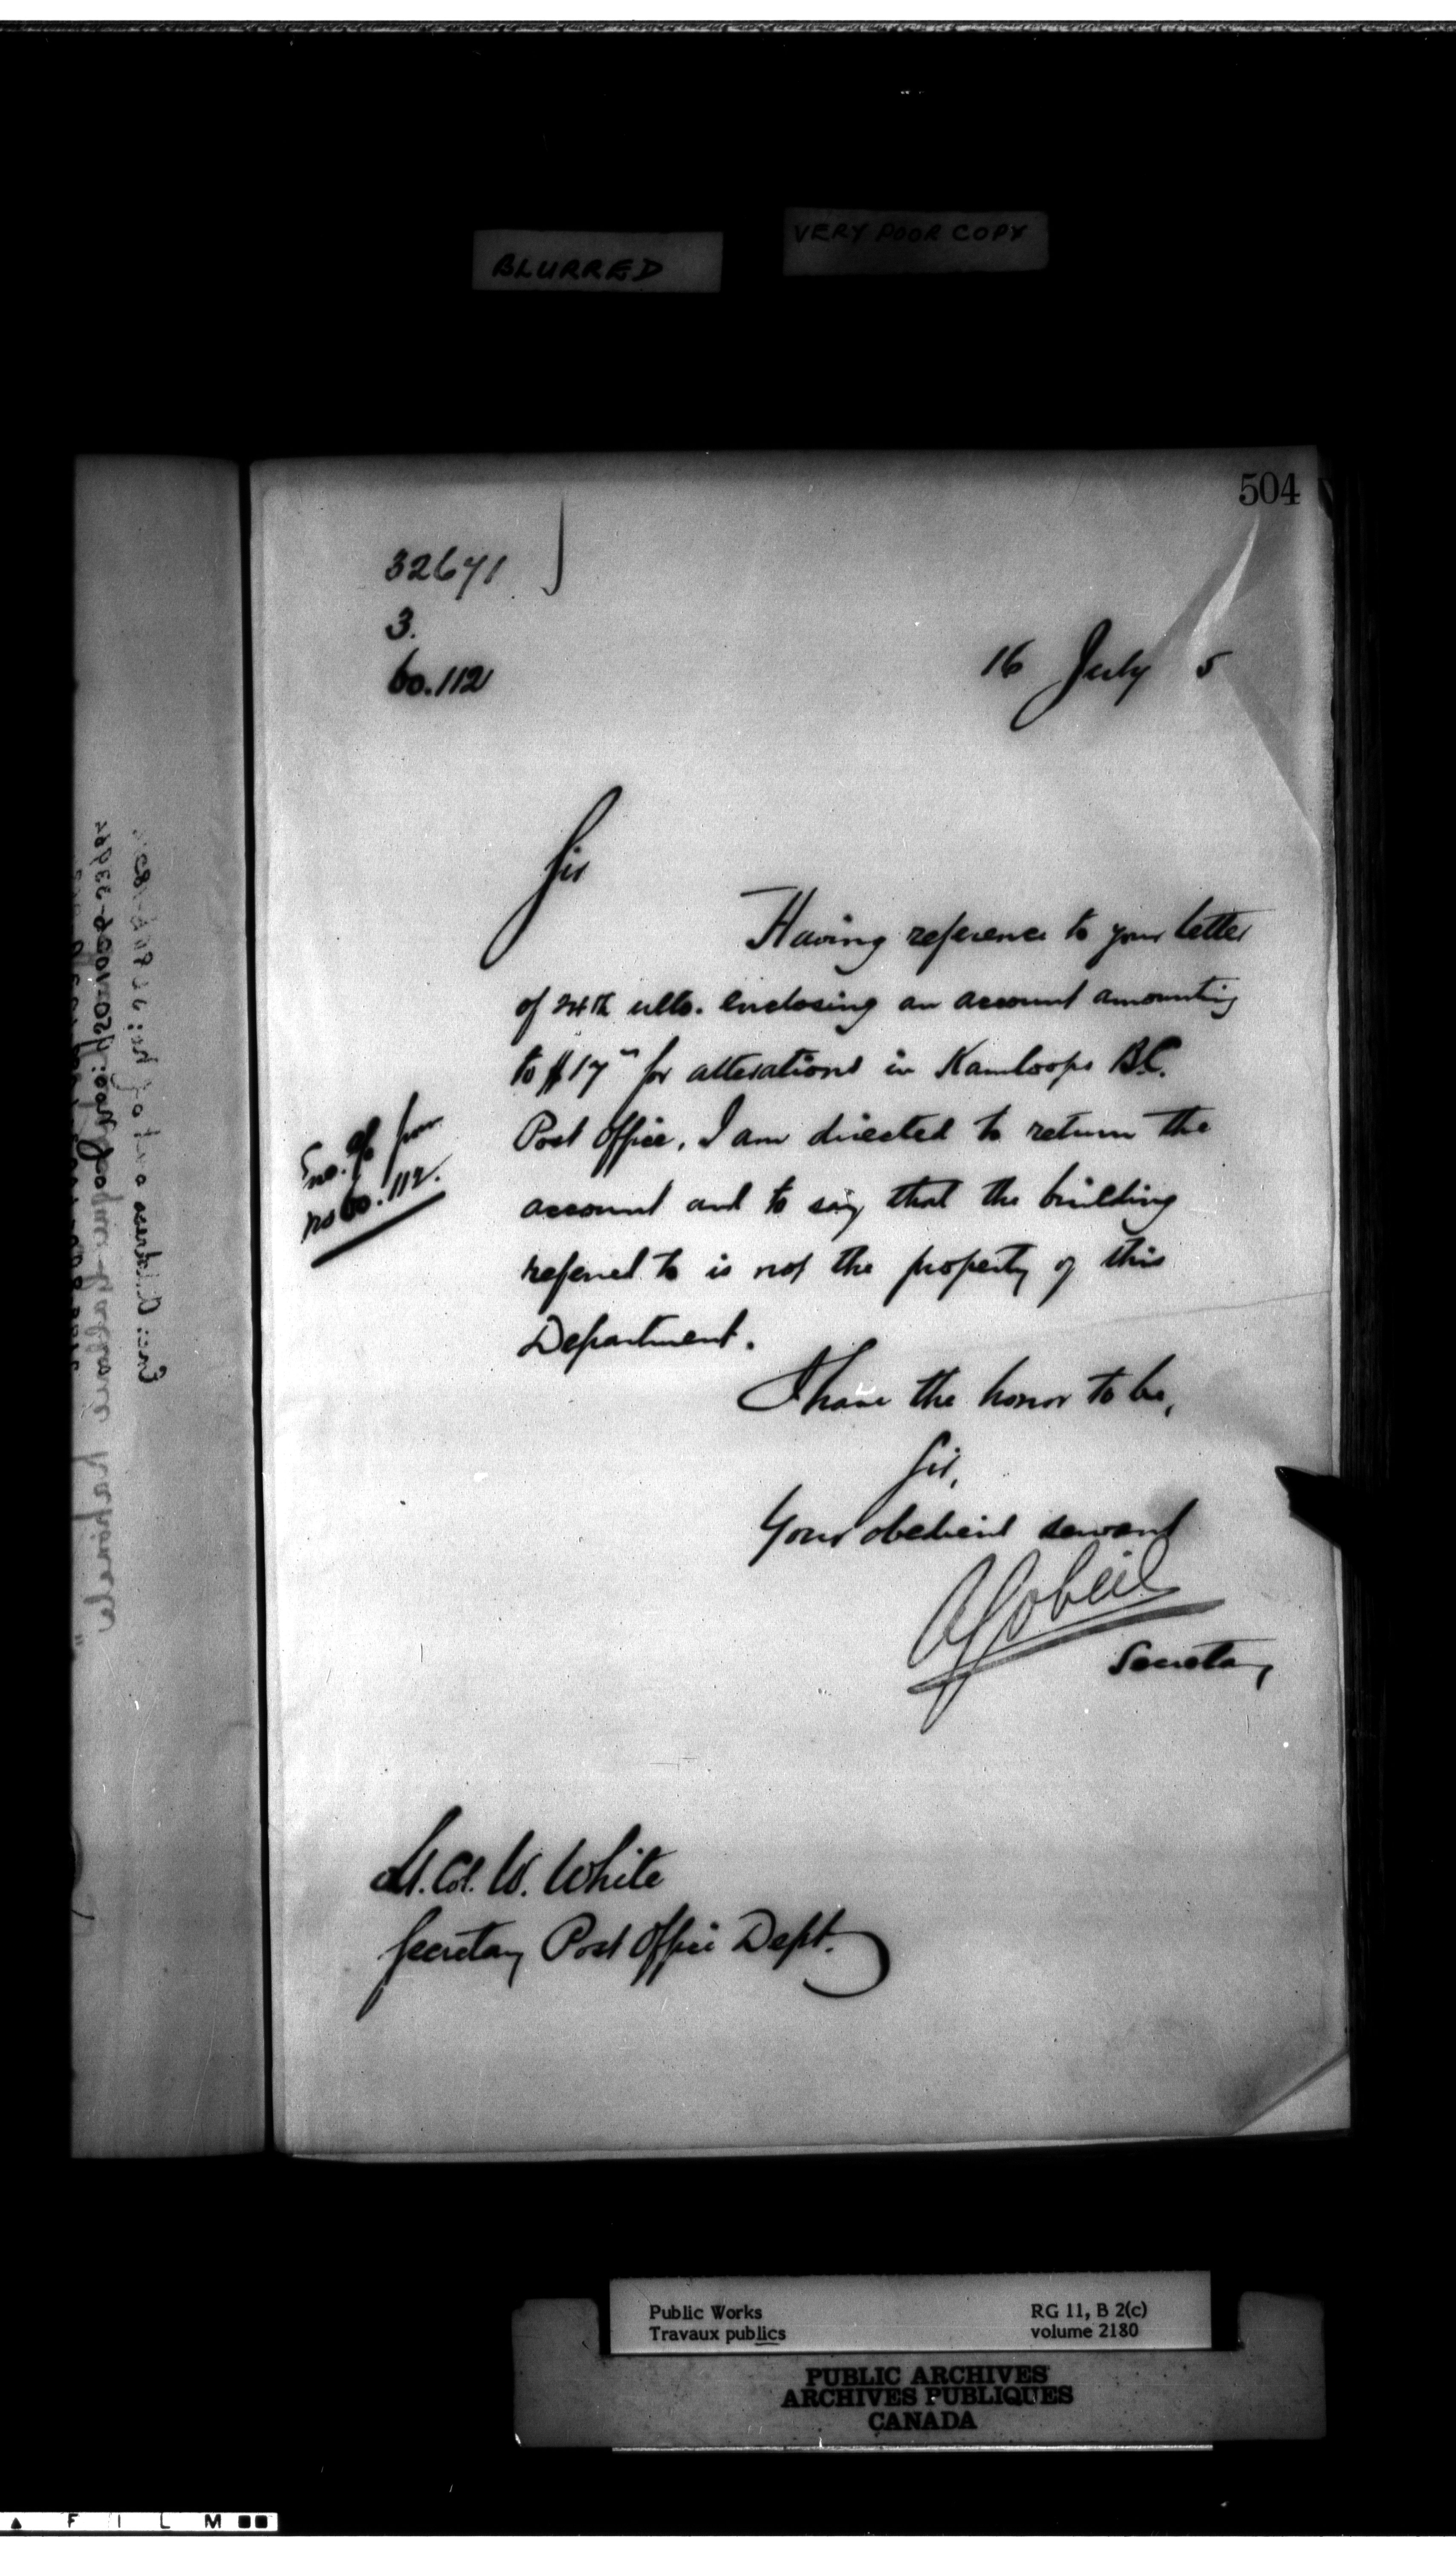 BLURRED
VERY POOR COPY
504
32671
3.
60.112
16 July 5
Sir
Having reference to your letter
of 24th ulto. enclosing an account amounting
to $17 for alterations in Kamloops B.C.
Post Office, I am directed to return the
account and to say that the building
referred to is not the property of this
Department.
Enc. from
no 60.112.
I have the honor to be,
Sir,
Your obedient servant
A Gobeil
Secretary
Lt. Col. W. White
Secretary Post Office Dept.
Public Works
Travaux publics
RG 11, B 2(c)
volume 2180
PUBLIC ARCHIVES
ARCHIVES PUBLIQUES
CANADA
F I L M